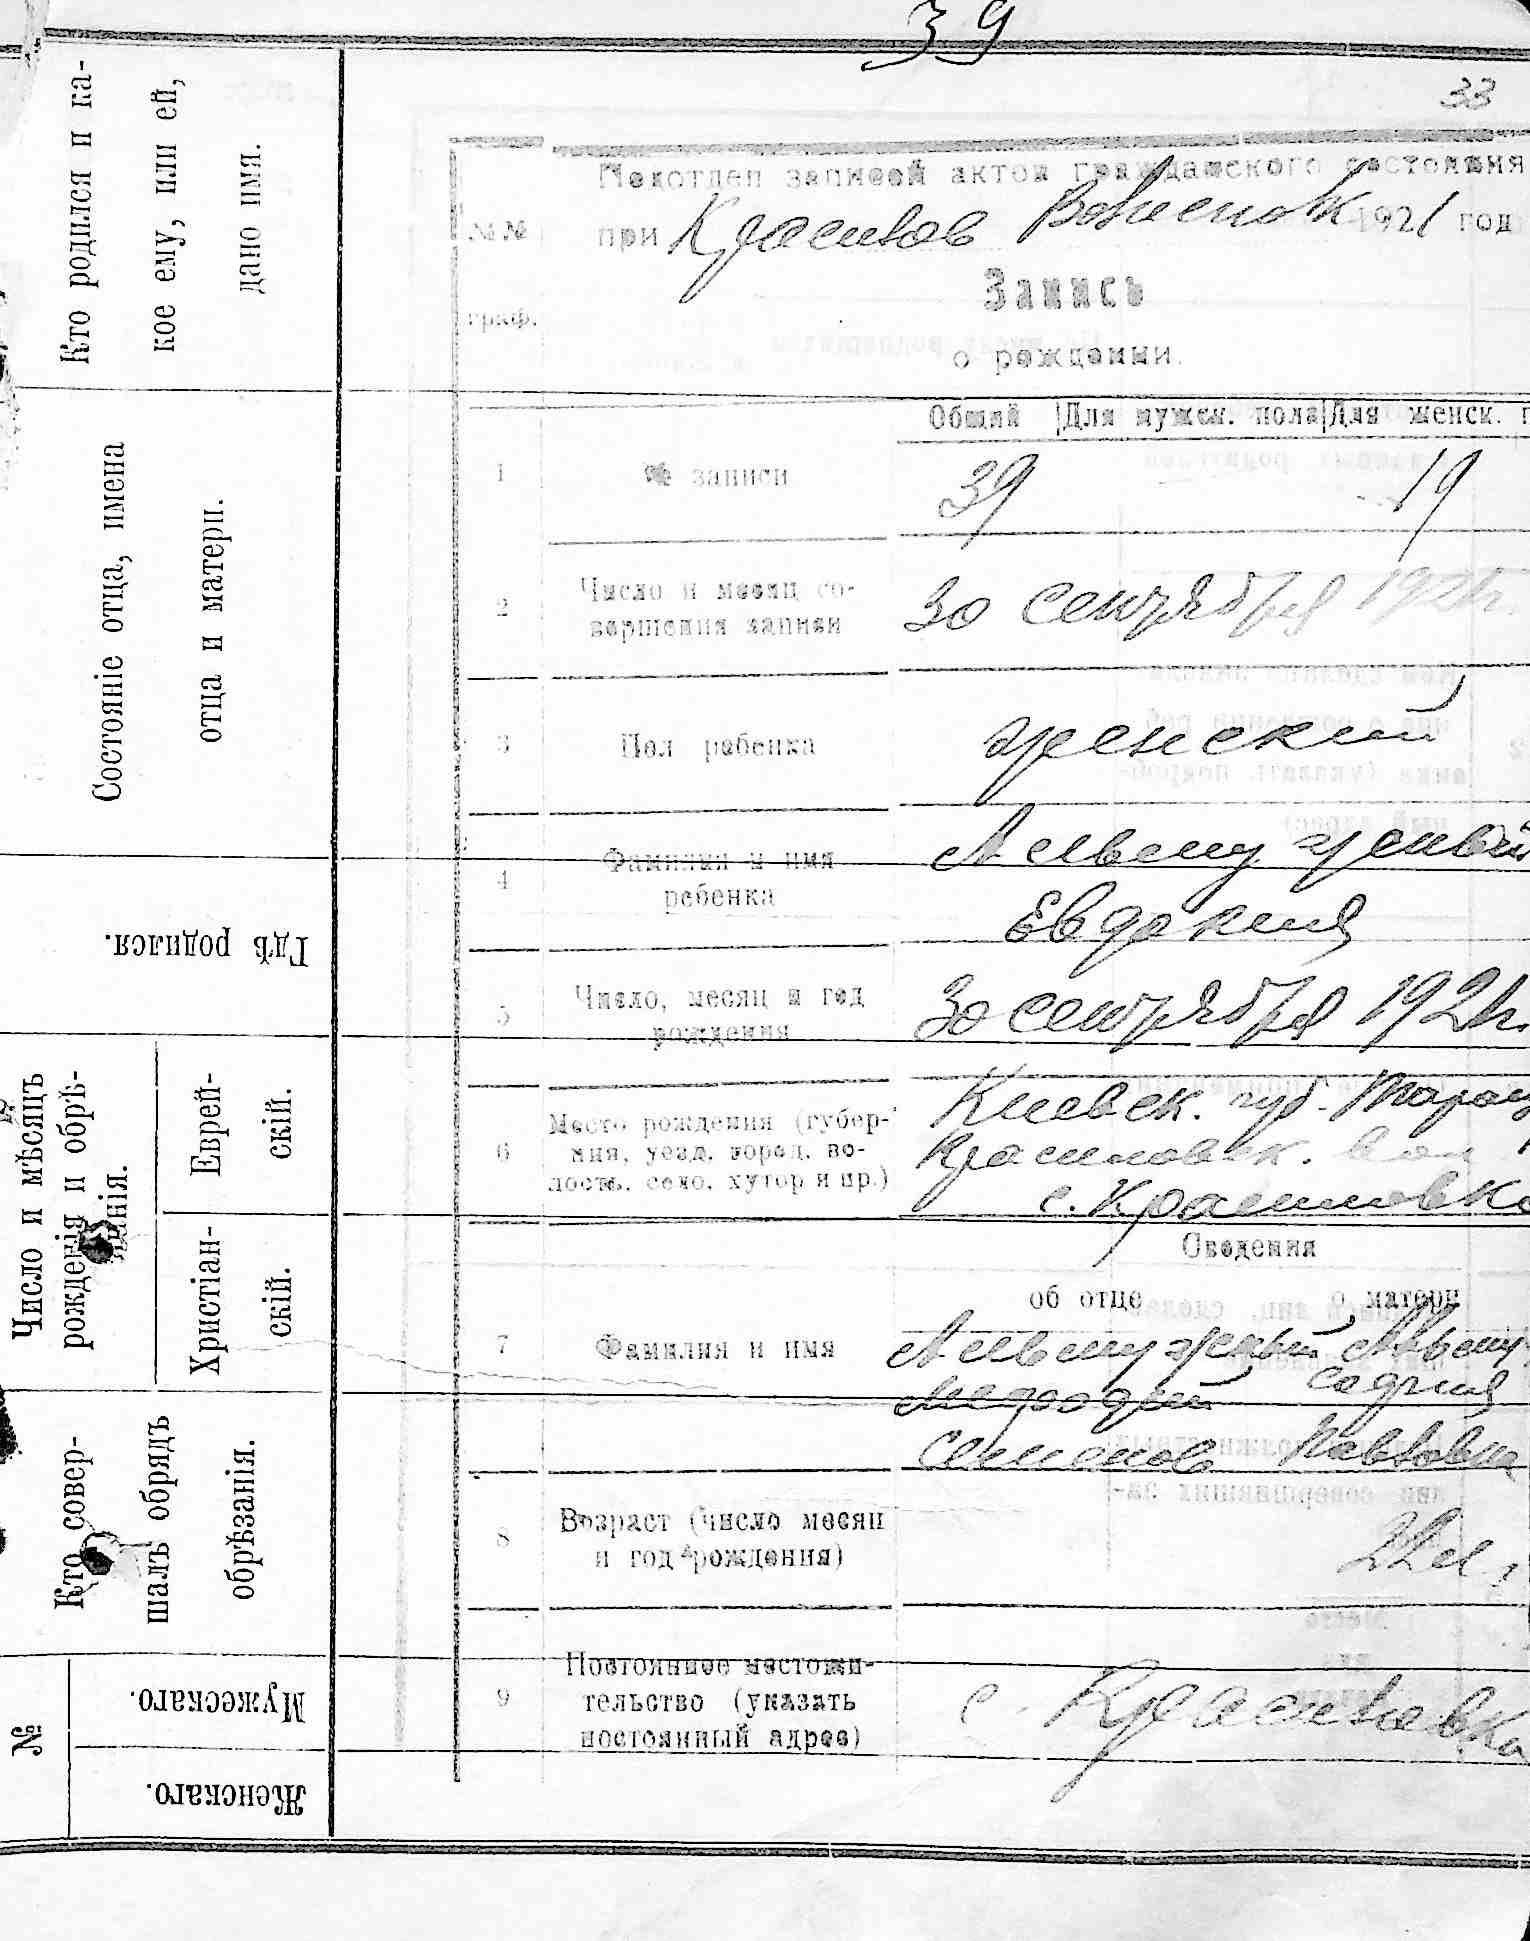 39
33
Подотдел записей актов гражданского состояния
при Красилов Волисполк 1921 год
№№ граф.
Запись
о рождении.
Общий Для мужск. пола Для женск. п
1 № записи 39 19
2 Число и месяц со-
вершения записи 30 сентября 1921 г.
3 Пол ребенка женский
4 Фамилия и имя
ребенка
Евдокия
5 Число, месяц и год
рождения 30 сентября 1921 г.
6 Место рождения (губер-
ния, уезд, город, во-
лость, село, хутор и пр.)
Киевск. губ. Таращ
Красиловск. вол
с. Красиловка
Сведения
об отце о матери
7 Фамилия и имя
Мефодий София
Семенов Павловна
8 Возраст (число месяц
и год рождения) 22 л.
9 Постоянное местожи-
тельство (указать
постоянный адрес) с. Красиловка
Кто родился и ка-
кое ему, или ей,
дано имя.
Состояніе отца, имена
отца и матери.
Гдѣ родился.
Число и мѣсяцъ
рожденія и обрѣ-
занія.
Еврей-
скій.
Христіан-
скій.
Кто совер-
шалъ обрядъ
обрѣзанія.
№
Мужескаго.
Женскаго.